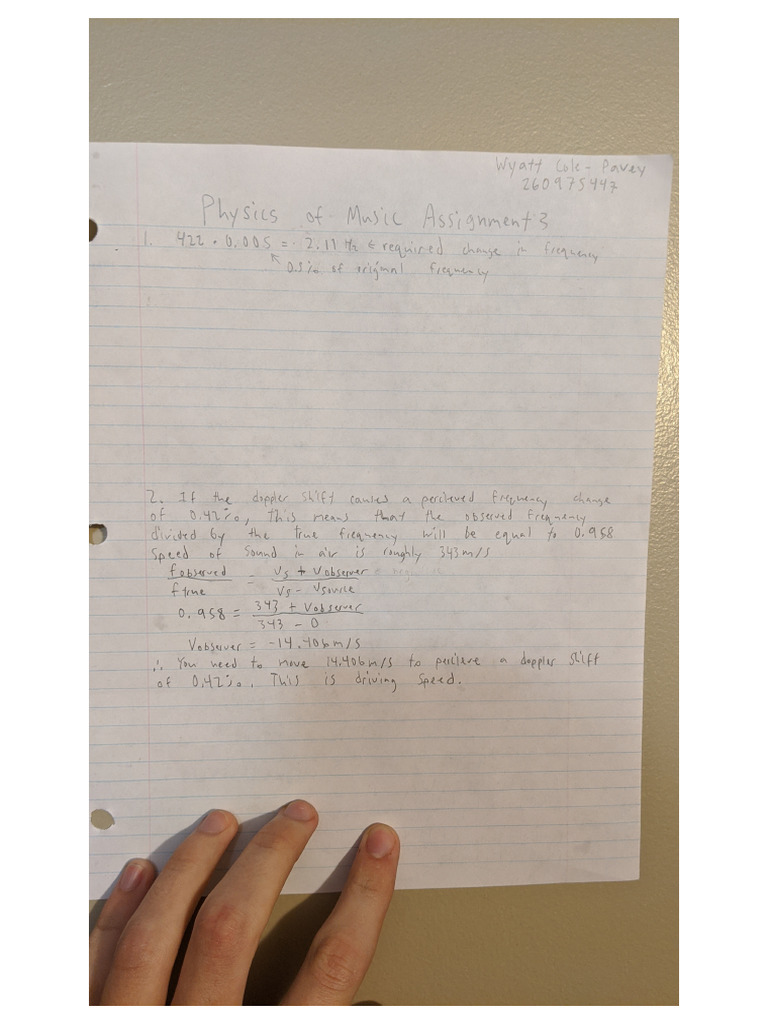 Wyatt Cole-Pavey
260975447
Physics of Music Assignment 3
1. 422 · 0.005 = 2.11 Hz ← required change in frequency
↖ 0.5% of original frequency
2. If the doppler shift causes a percieved frequency change
of 0.42%, this means that the observed frequency
divided by the true frequency will be equal to 0.958
Speed of sound in air is roughly 343m/s
f observed / f true = Vs + Vobserver / Vs - Vsource
0.958 = 343 + Vobserver / 343 - 0
Vobserver = -14.406m/s
∴ You need to move 14.406m/s to percieve a doppler shift
of 0.42%. This is driving speed.